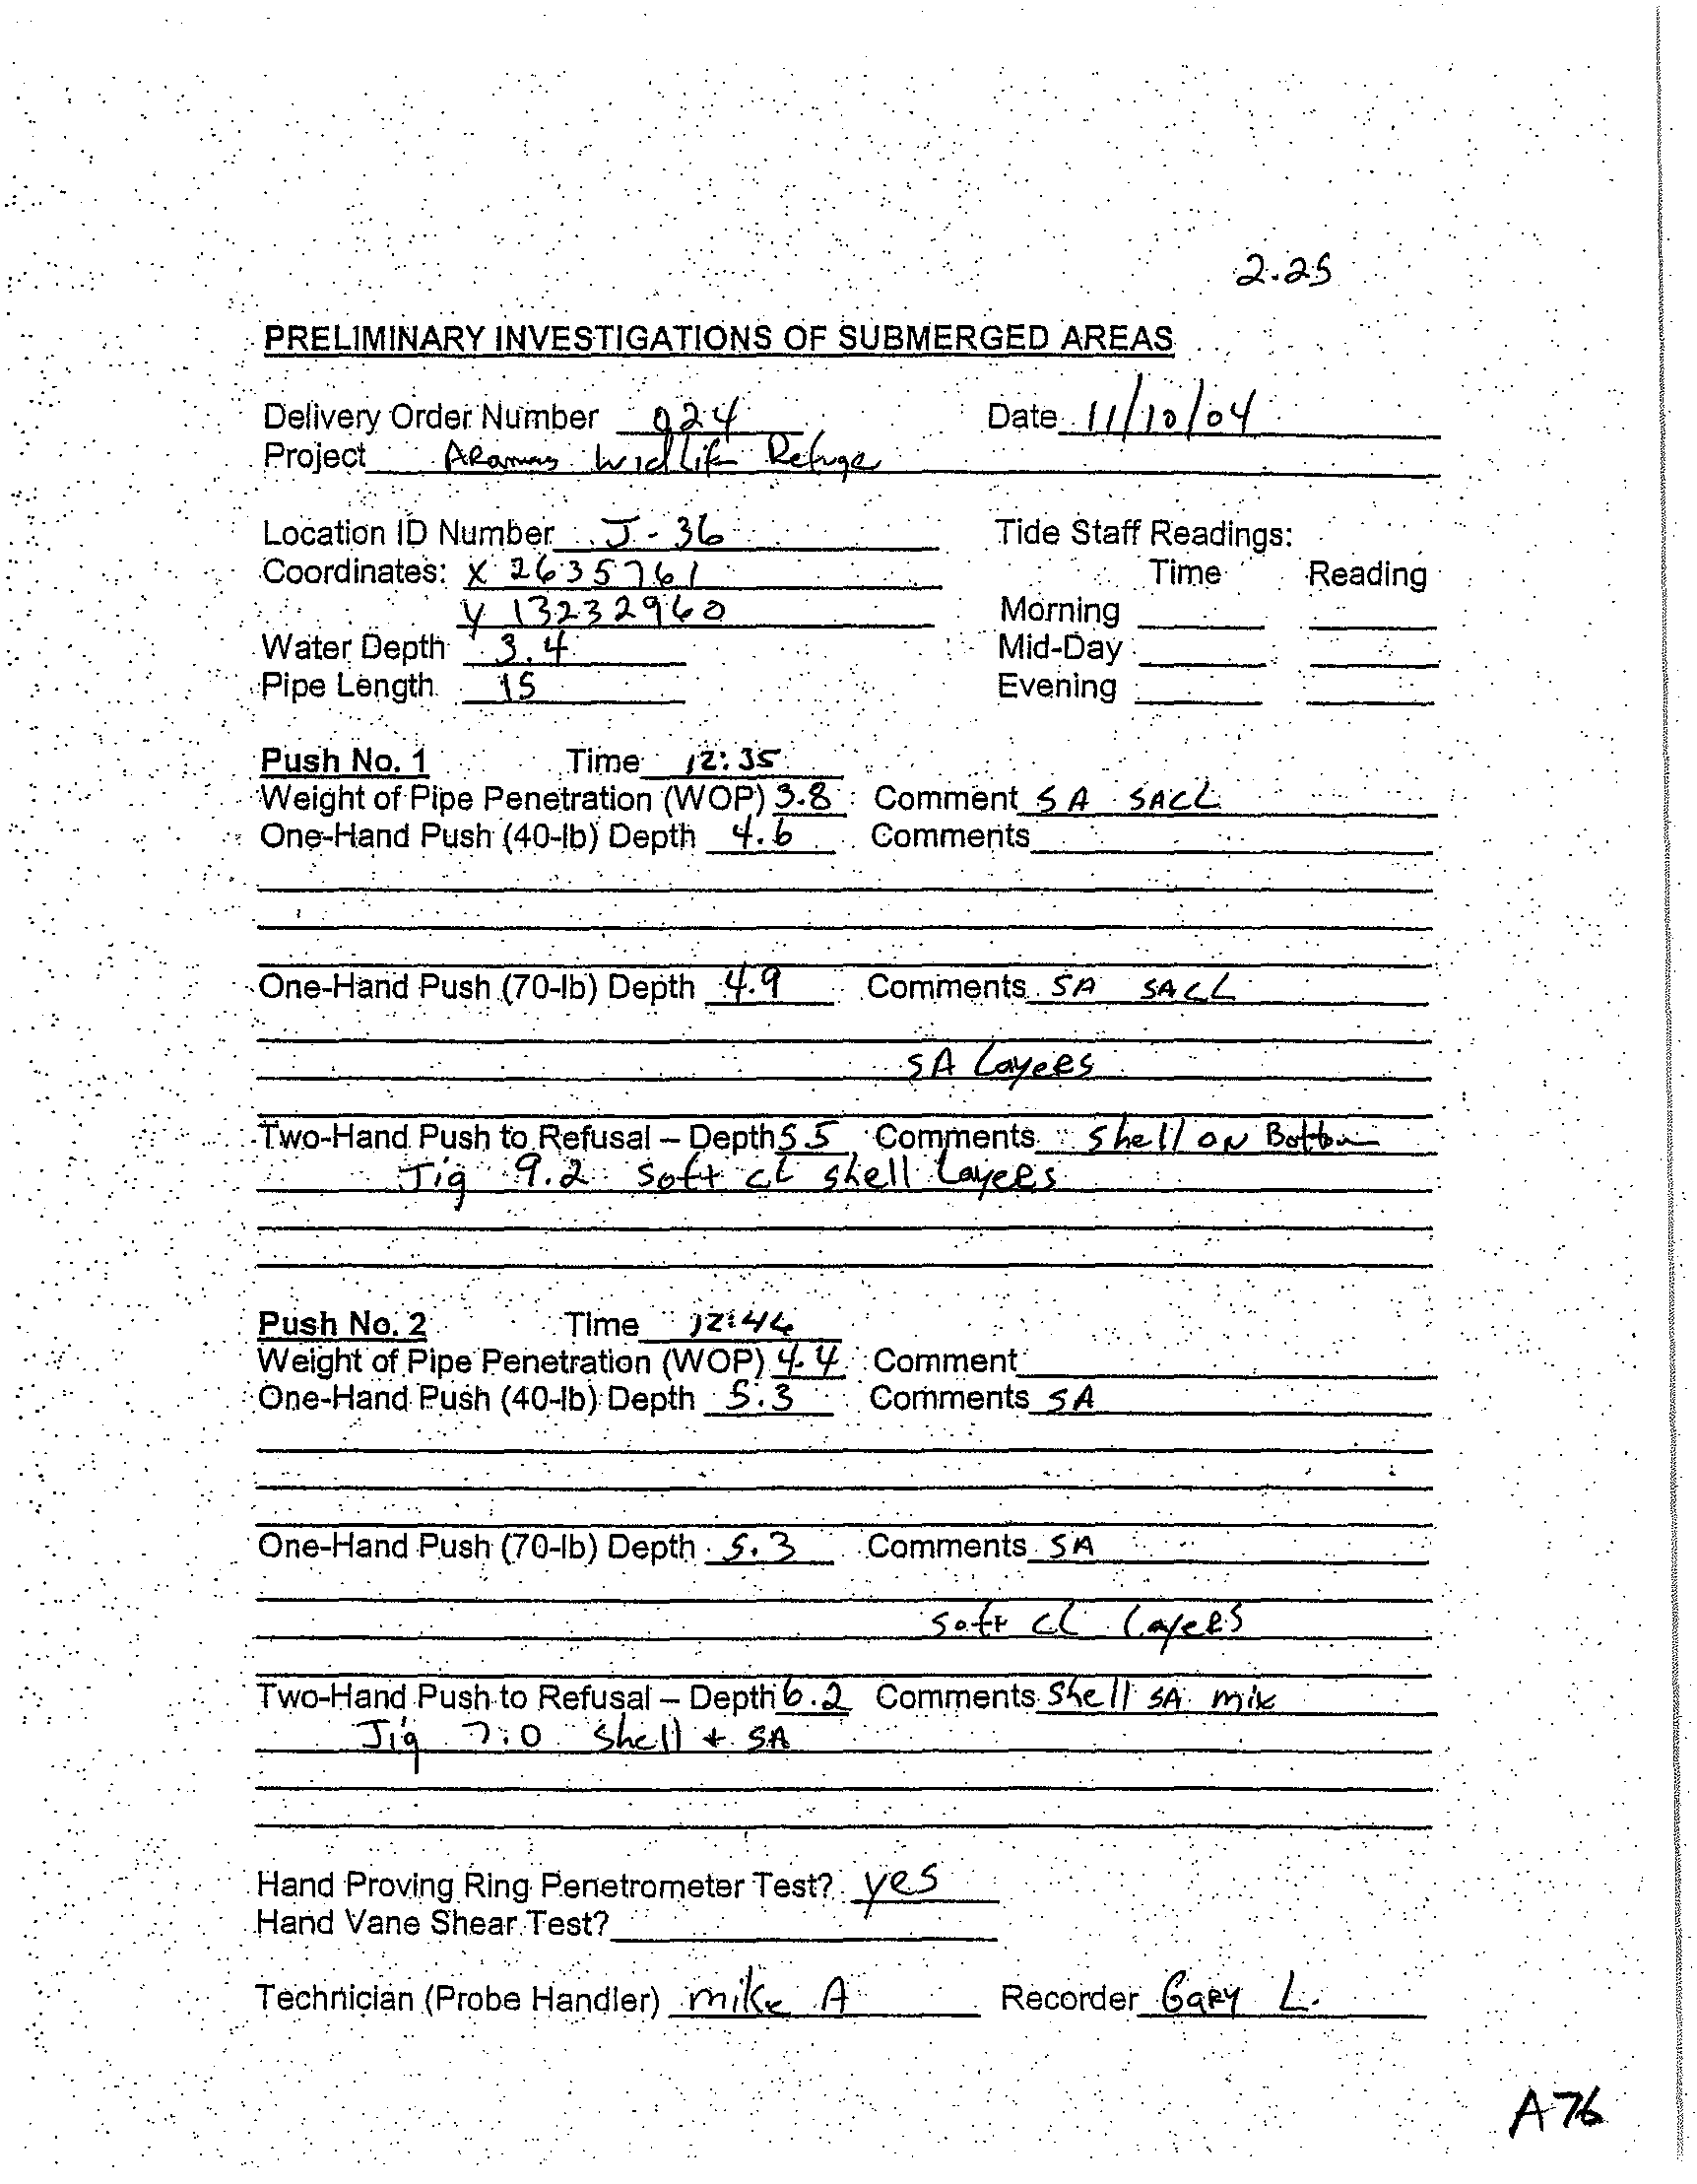 2.25
PRELIMINARY INVESTIGATIONS OF SUBMERGED AREAS
Delivery Order Number 024 Date 11/10/04
Project Refuge
Location ID Number J-36 Tide Staff Readings:
Coordinates: X 2635761 Time Reading
Y 13232960 Morning
Water Depth 3.4 Mid-Day
Pipe Length 15 Evening
Push No. 1 Time 12:35
Weight of Pipe Penetration (WOP) 3.8 Comment SA SACL
One-Hand Push (40-lb) Depth 4.6 Comments
One-Hand Push (70-lb) Depth 4.9 Comments SA SACL
SA Layers
Two-Hand Push to Refusal – Depth 5.5 Comments Shell on Bottom
Jig 9.2 Soft CL shell Layers
Push No. 2 Time
Weight of Pipe Penetration (WOP) 4.4 Comment
One-Hand Push (40-lb) Depth 5.3 Comments SA
One-Hand Push (70-lb) Depth 5.3 Comments SA
Soft CL Layers
Two-Hand Push to Refusal – Depth 6.2 Comments Shell SA mix
Jig 7.0 Shell + SA
Hand Proving Ring Penetrometer Test? yes
Hand Vane Shear Test?
Technician (Probe Handler) mike A Recorder Gary L.
A76